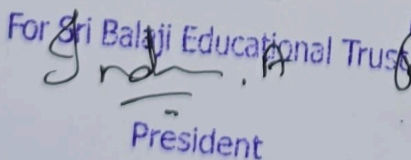 For Sri Balaji Educational Trust
President